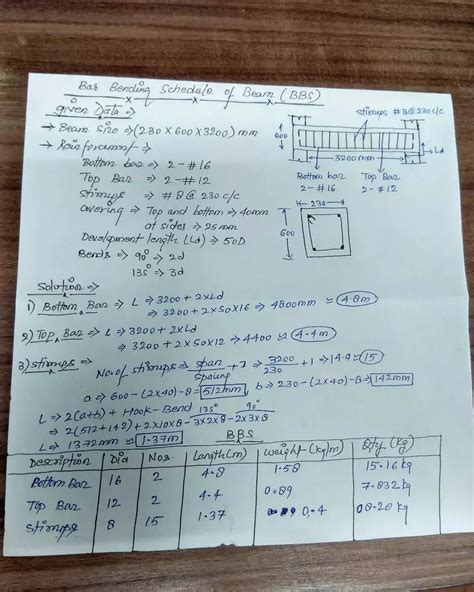 Bar Bending Schedule of Beam (BBS)
given Data ⇒
→ Beam size ⇒ (230 × 600 × 3200) mm
→ Reinforcement ⇒
Bottom bar ⇒ 2 - #16
Top Bar ⇒ 2 - #12
Stirrups ⇒ #8 @ 230 c/c
Covering ⇒ Top and bottom ⇒ 40mm
at sides ⇒ 25 mm
Development length (Ld) ⇒ 50D
Bends ⇒ 90° ⇒ 2d
135° ⇒ 3d
stirrups #8@230 c/c
600
3200mm
Ld
Bottom bar
2-#16
Top Bar
2-#12
230
600
Solution ⇒
1) Bottom Bar ⇒ L ⇒ 3200 + 2×Ld
⇒ 3200 + 2×50×16 ⇒ 4800mm ≈ 4.8m
2) Top Bar ⇒ L ⇒ 3200 + 2×Ld
⇒ 3200 + 2×50×12 ⇒ 4400 ≈ 4.4m
3) Stirrups ⇒
No. of stirrups ⇒ span/spacing + 1 ⇒ 3200/230 + 1 ⇒ 14.9 ≈ 15
a ⇒ 600 - (2×40) - 8 = 512mm, b ⇒ 230 - (2×40) - 8 = 142mm
L ⇒ 2(a+b) + Hook - Bend 135° 90°
⇒ 2(512+142) + 2×10×8 - 3×2×8 - 2×3×8
L ⇒ 1372mm ≈ 1.37m
BBS
Description Dia Nos. Length(m) weight (kg/m) Qty (kg)
Bottom Bar 16 2 4.8 1.58 15.16 kg
Top Bar 12 2 4.4 0.89 7.832 kg
Stirrups 8 15 1.37 0.4 08.20 kg